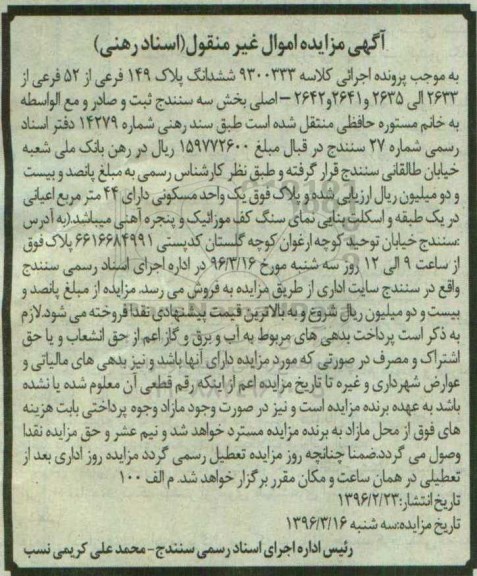 آگهی مزایده اموال غیر منقول(اسناد رهنی)
به موجب پرونده اجرائی کلاسه ۹۳۰۰۳۳۳ ششدانگ پلاک ۱۴۹ فرعی از ۵۲ فرعی از
۲۶۳۳ الی ۲۶۳۵ و۲۶۴۱و۲۶۴۲ –اصلی بخش سه سنندج ثبت و صادر و مع الواسطه
به خانم مستوره حافظی منتقل شده است طبق سند رهنی شماره ۱۴۲۷۹ دفتر اسناد
رسمی شماره ۲۷ سنندج در قبال مبلغ ۱۵۹۷۷۲۶۰۰ ریال در رهن بانک ملی شعبه
خیابان طالقانی سنندج قرار گرفته و طبق نظر کارشناس رسمی به مبلغ پانصد و بیست
و دو میلیون ریال ارزیابی شده و پلاک فوق یک واحد مسکونی دارای ۴۴ متر مربع اعیانی
در یک طبقه و اسکلت بنایی نمای سنگ کف موزائیک و پنجره آهنی میباشد.(به آدرس
:سنندج خیابان توحید کوچه ارغوان کوچه گلستان کدپستی ۶۶۱۶۶۸۴۹۹۱ پلاک فوق
از ساعت ۹ الی ۱۲ روز سه شنبه مورخ ۹۶/۳/۱۶ در اداره اجرای اسناد رسمی سنندج
واقع در سنندج سایت اداری از طریق مزایده به فروش می رسد. مزایده از مبلغ پانصد و
بیست و دو میلیون ریال شروع و به بالاترین قیمت پیشنهادی نقدا فروخته می شود.لازم
به ذکر است پرداخت بدهی های مربوط به آب و برق و گاز اعم از حق انشعاب و یا حق
اشتراک و مصرف در صورتی که مورد مزایده دارای آنها باشد و نیز بدهی های مالیاتی و
عوارض شهرداری و غیره تا تاریخ مزایده اعم از اینکه رقم قطعی آن معلوم شده یا نشده
باشد به عهده برنده مزایده است و نیز در صورت وجود مازاد وجوه پرداختی بابت هزینه
های فوق از محل مازاد به برنده مزایده مسترد خواهد شد و نیم عشر و حق مزایده نقدا
وصول می گردد.ضمنا چنانچه روز مزایده تعطیل رسمی گردد مزایده روز اداری بعد از
تعطیلی در همان ساعت و مکان مقرر برگزار خواهد شد. م الف ۱۰۰
تاریخ انتشار:۱۳۹۶/۲/۲۳
تاریخ مزایده:سه شنبه ۱۳۹۶/۳/۱۶
رئیس اداره اجرای اسناد رسمی سنندج-محمد علی کریمی نسب